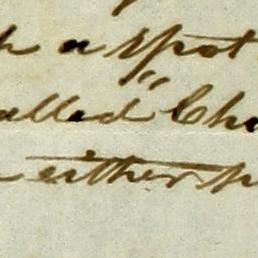 a spot
alled "Cha
either